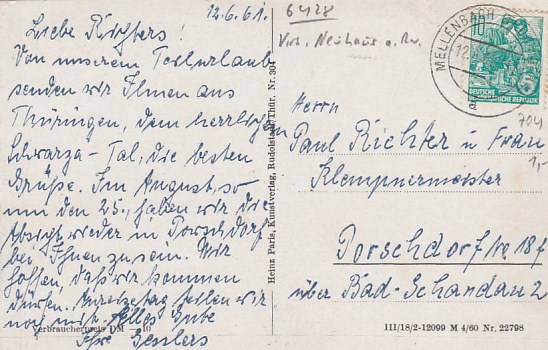 12.6.61.
Liebe Richters!
Von unserem Teilurlaub
senden wir Ihnen aus
Thüringen, dem herrlichen
Schwarza-Tal, die besten
Grüße. Im August, so
um den 25., haben wir die
Absicht wieder in Porschdorf
bei Ihnen zu sein. Wir
hoffen, daß wir kommen
dürfen. teilen wir
noch mit. Alles Gute
Ihre Gesslers
Verbraucherpreis DM 10
Heinz Paris, Kunstverlag, Rudolstadt/Thür. Nr. 304
6428
Neuhaus a. Rw.
MELLENBACH
12.6
10
5
DEUTSCHE
DEMOKRATISCHE REPUBLIK
704
1,-
Herrn
Paul Richter u. Frau
Klempnermeister
Porschdorf Nr. 18 f
über Bad-Schandau 2
III/18/2-12099 M 4/60 Nr. 22798